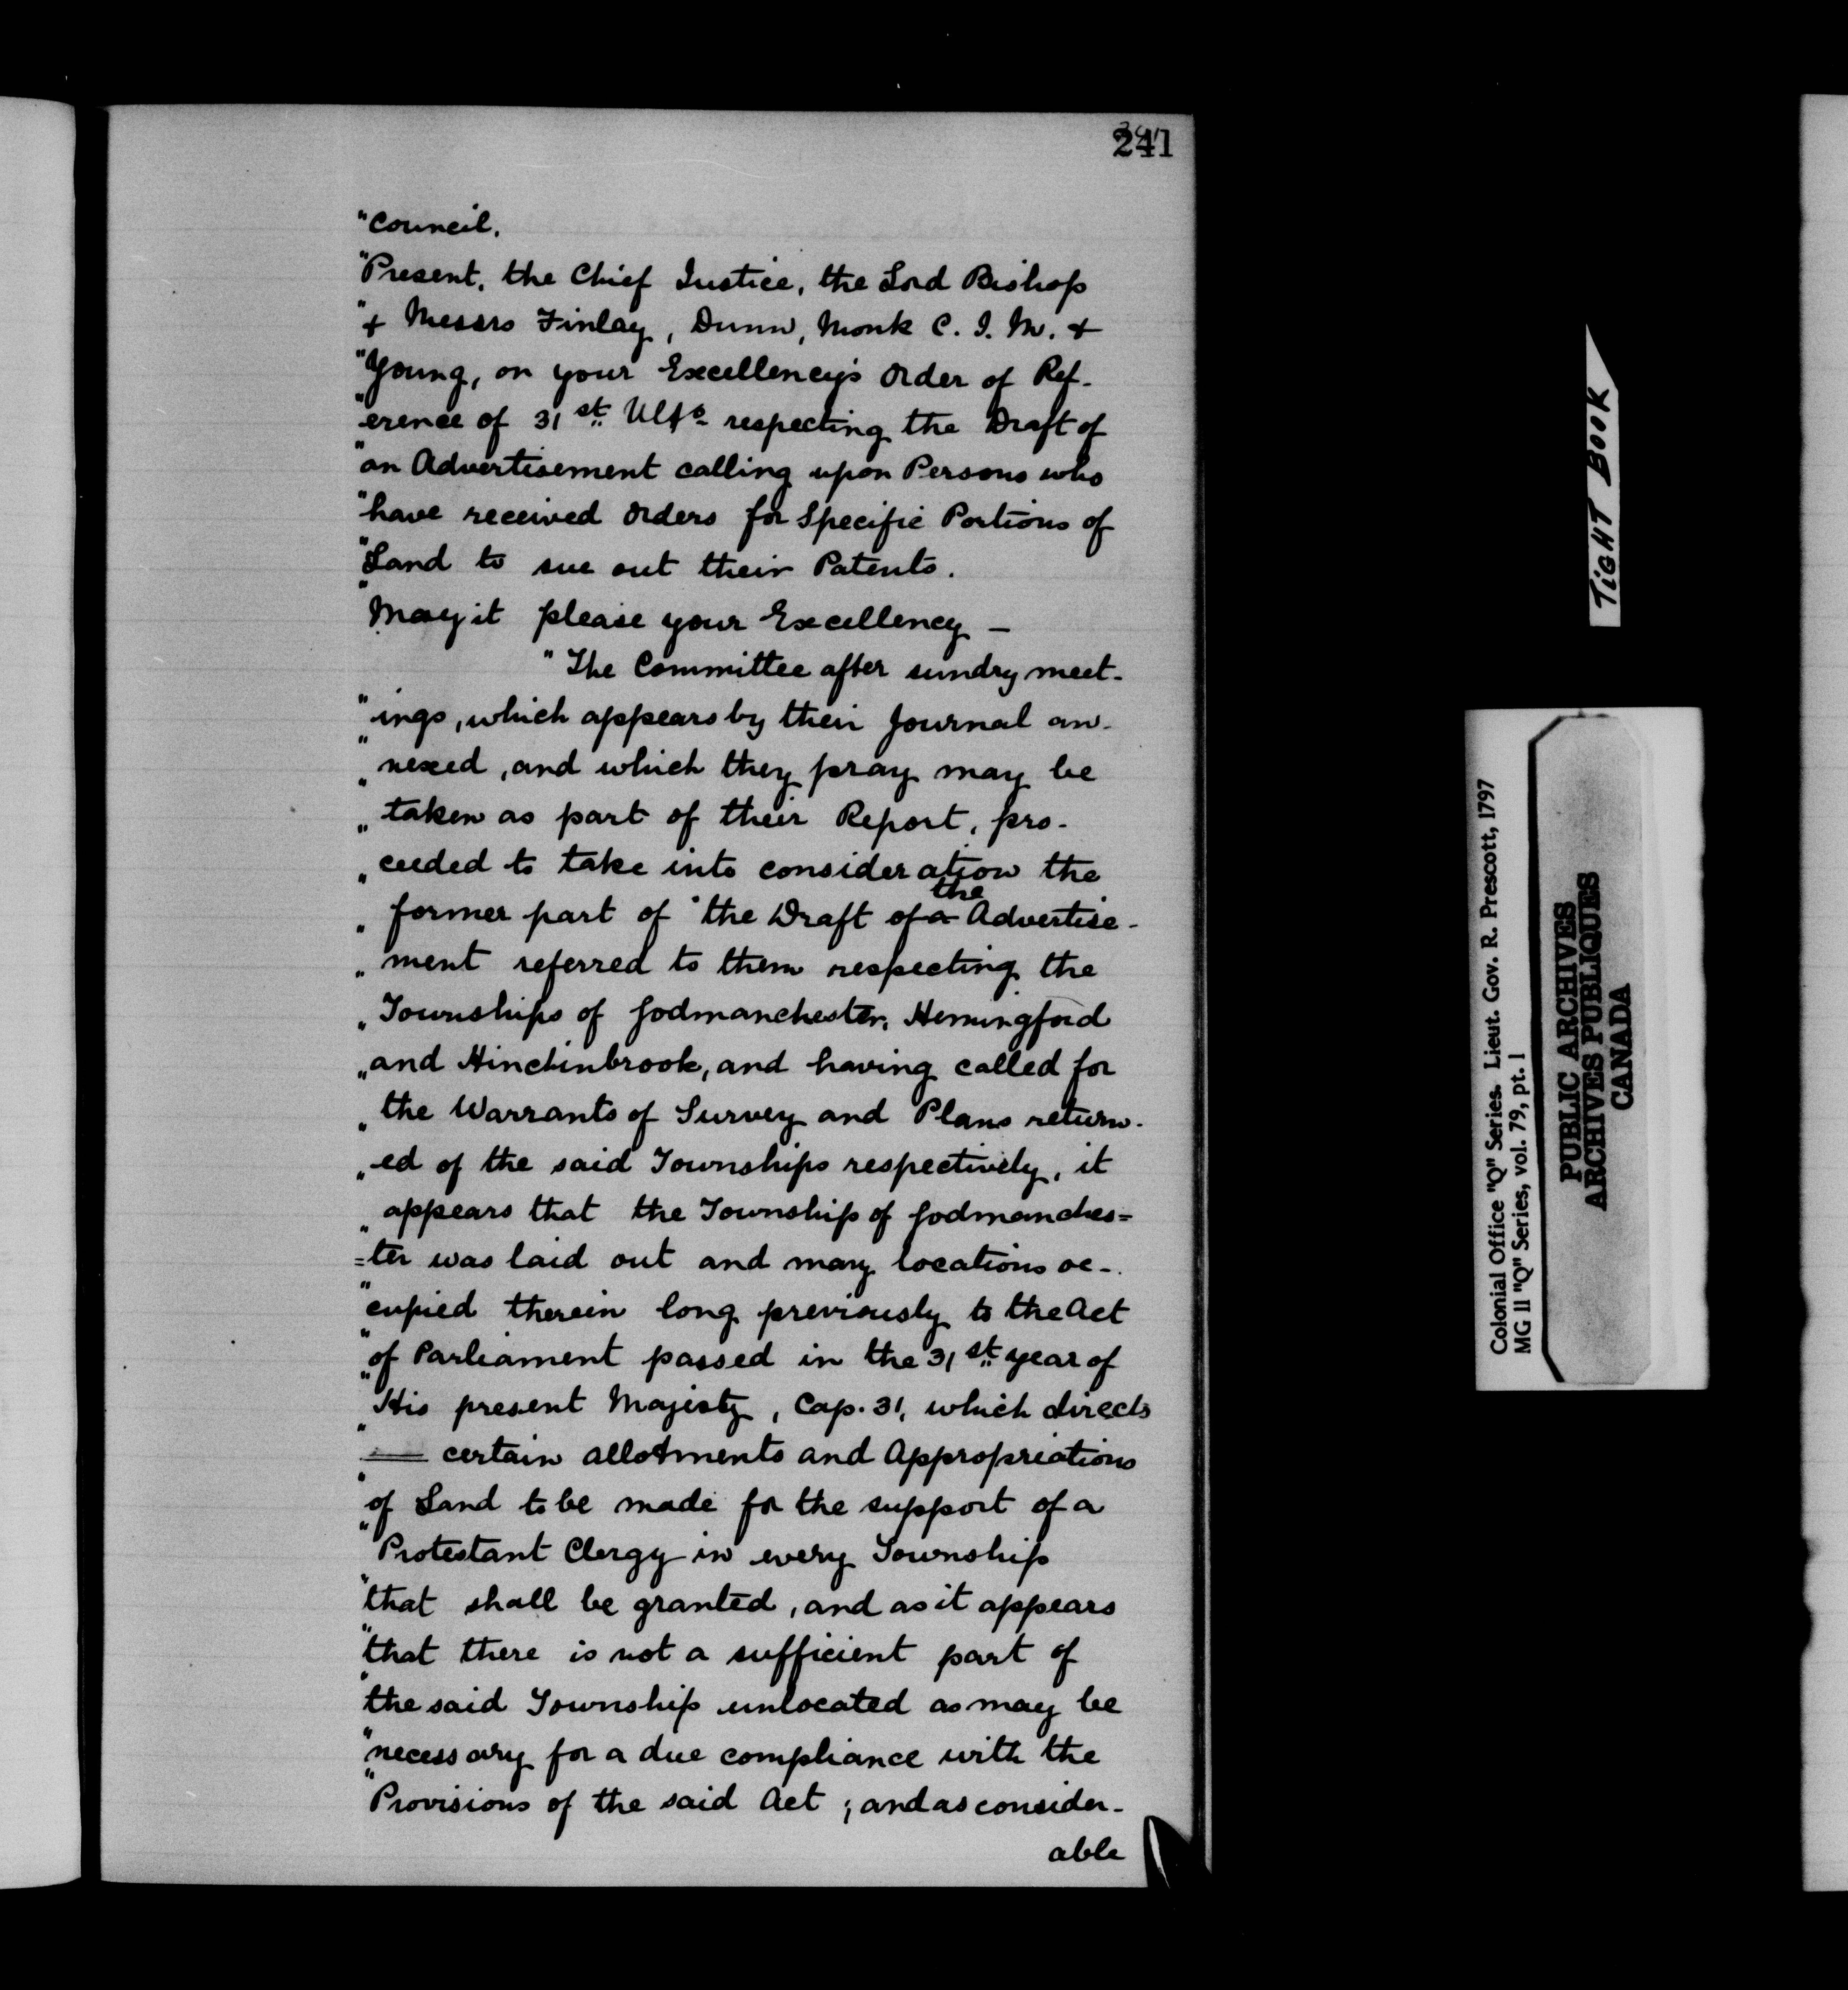 241
"Council.
"Present, the Chief Justice, the Lord Bishop
"& Messrs Finlay, Dunn, Monk C. J. M. &
"Young, on your Excellency's Order of Ref-
"erence of 31st Ulto respecting the Draft of
"an Advertisement calling upon Persons who
"have received Orders for Specific Portions of
"Land to sue out their Patents.
"May it please your Excellency —
"The Committee after sundry meet-
"ings, which appears by their Journal an-
"nexed, and which they pray may be
"taken as part of their Report, pro-
"ceeded to take into consideration the
the
"former part of the Draft of a Advertise-
"ment referred to them respecting the
"Townships of Godmanchester, Hemingford
"and Hinchinbrook, and having called for
"the Warrants of Survey and Plans return-
"ed of the said Townships respectively, it
"appears that the Township of Godmanches=
=ter was laid out and many locations oc-
"cupied therein long previously to the Act
"of Parliament passed in the 31st year of
"His present Majesty, Cap. 31, which directs
"— certain allotments and Appropriations
"of Land to be made for the support of a
"Protestant Clergy in every Township
"that shall be granted, and as it appears
"that there is not a sufficient part of
"the said Township unlocated as may be
"necessary for a due compliance with the
"Provisions of the said Act; and as consider-
able
TIGHT BOOK
Colonial Office "Q" Series. Lieut. Gov. R. Prescott, 1797
MG 11 "Q" Series, vol. 79, pt. 1
PUBLIC ARCHIVES
ARCHIVES PUBLIQUES
CANADA